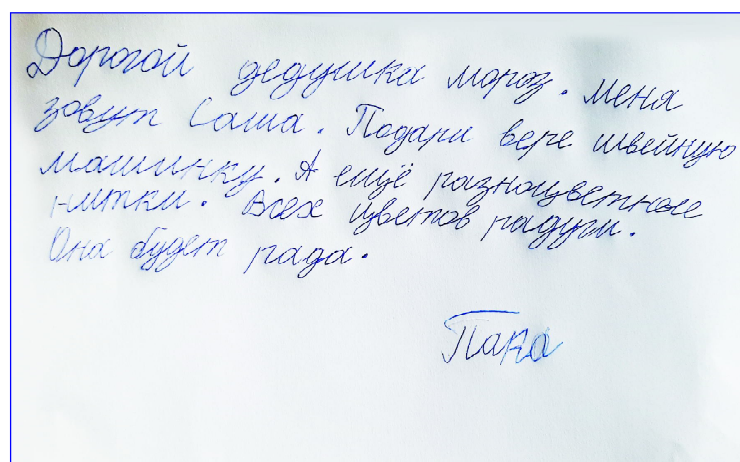 Дорогой дедушка мороз. меня
зовут Саша. Подари вере швейную
машинку. А ещё разноцветные
нитки. Всех цветов радуги.
Она будет рада.
Пака